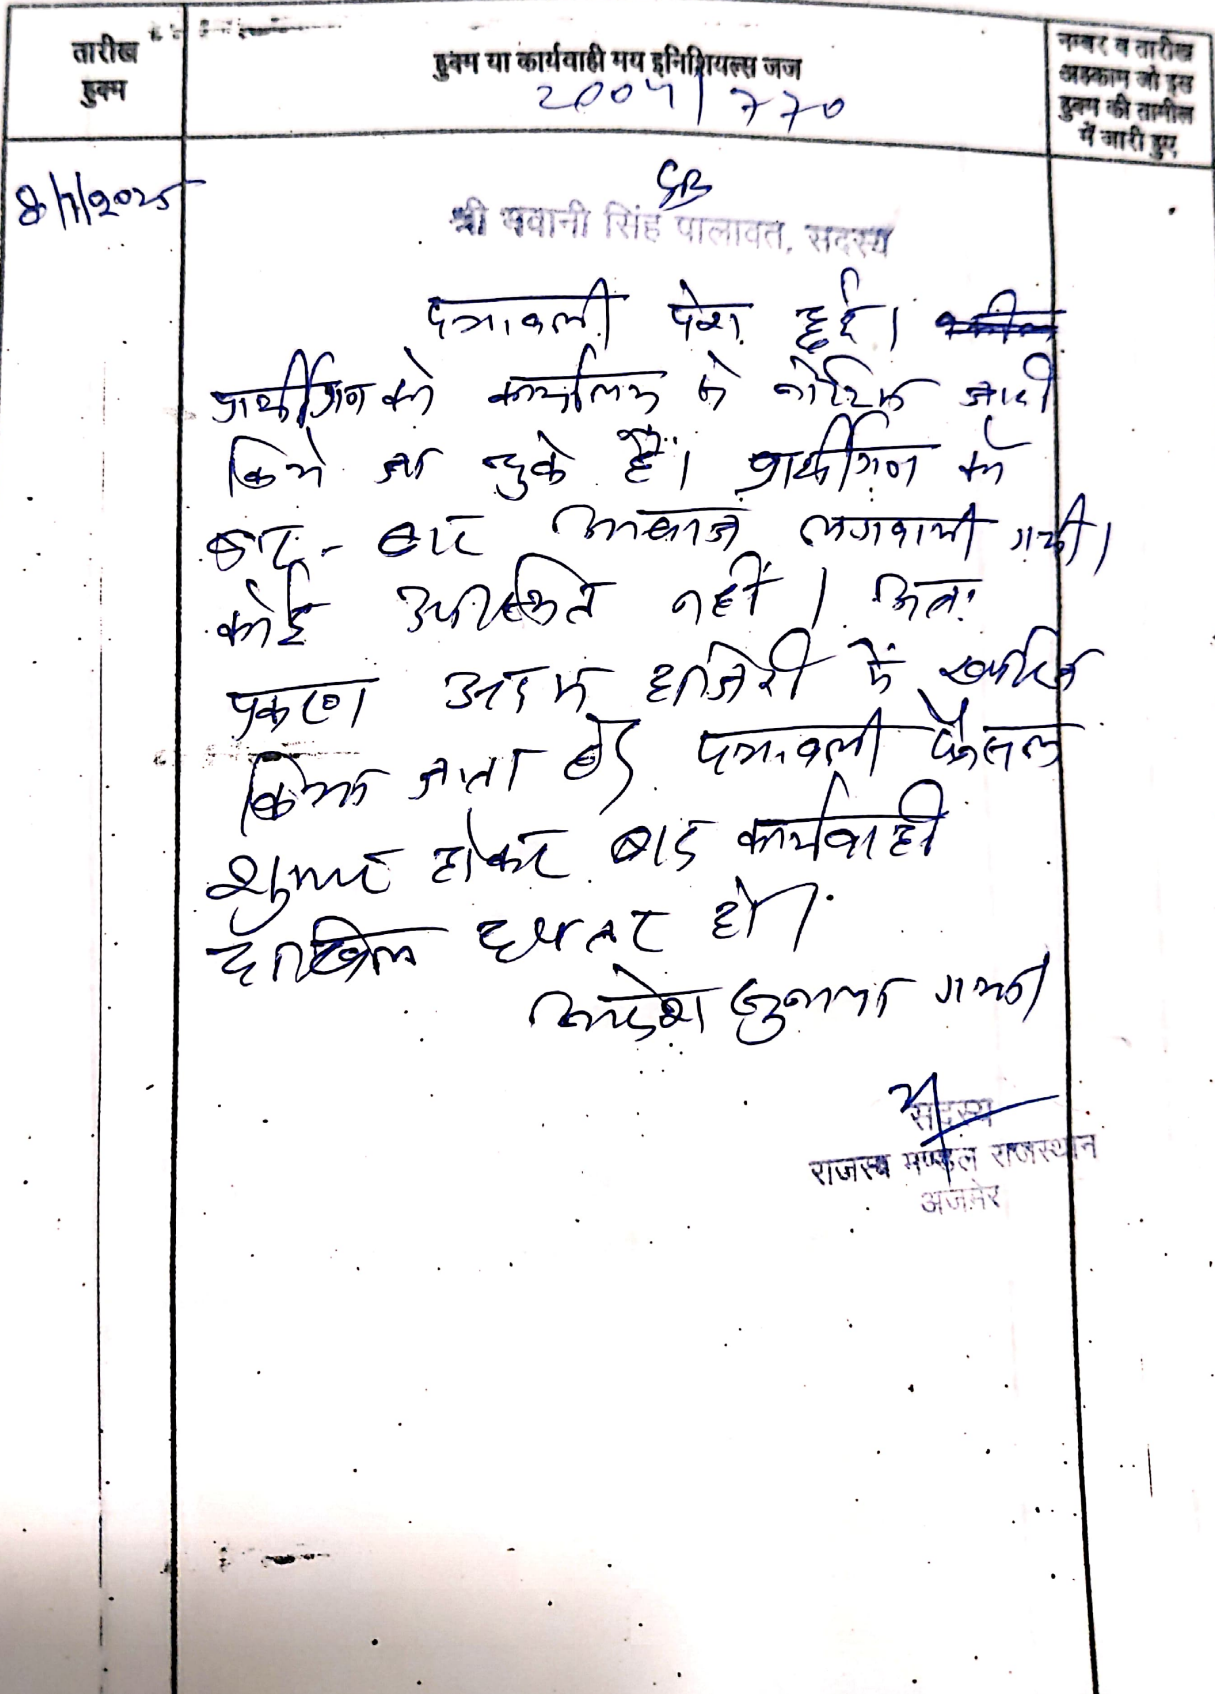 तारीख
हुक्म
हुक्म या कार्यवाही मय इनिशियल्स जज
नम्बर व तारीख
अहकाम जो इस
हुक्म की तामील
में जारी हुए
2004/770
8/7/2025
SB
श्री भवानी सिंह पालावत, सदस्य
पत्रावली पेश हुई।
प्रार्थीगण को कार्यालय से नोटिस जारी
किये जा चुके हैं। प्रार्थीगण को
बार-बार आवाज लगवायी गयी।
कोई उपस्थित नहीं। अतः
प्रकरण अदम हाजिरी में खारिज
किया जाता है। पत्रावली फैसल
शुमार होकर बाद कार्यवाही
दाखिल दफ्तर हो।
आदेश सुनाया गया।
सदस्य
राजस्व मण्डल राजस्थान
अजमेर